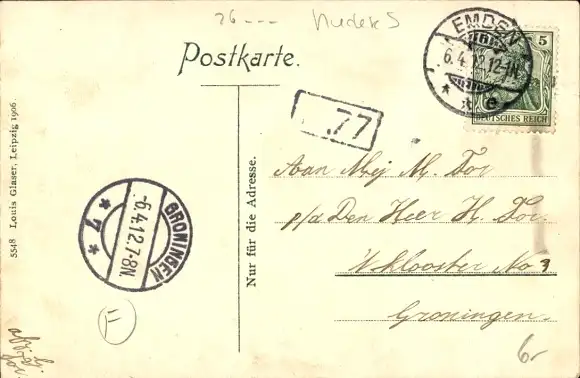 26
Postkarte.
EMDEN
6.4.12.12-1N.
* * e
5
DEUTSCHES REICH
77
5548 Louis Glaser, Leipzig 1906.
Nur für die Adresse.
GRONINGEN
-6.4.12.7-8N.
* 7 *
Aan Mej M. Tor
p/a Den Heer H. Tor.
W Klooster No 3
Groningen.
11
6-